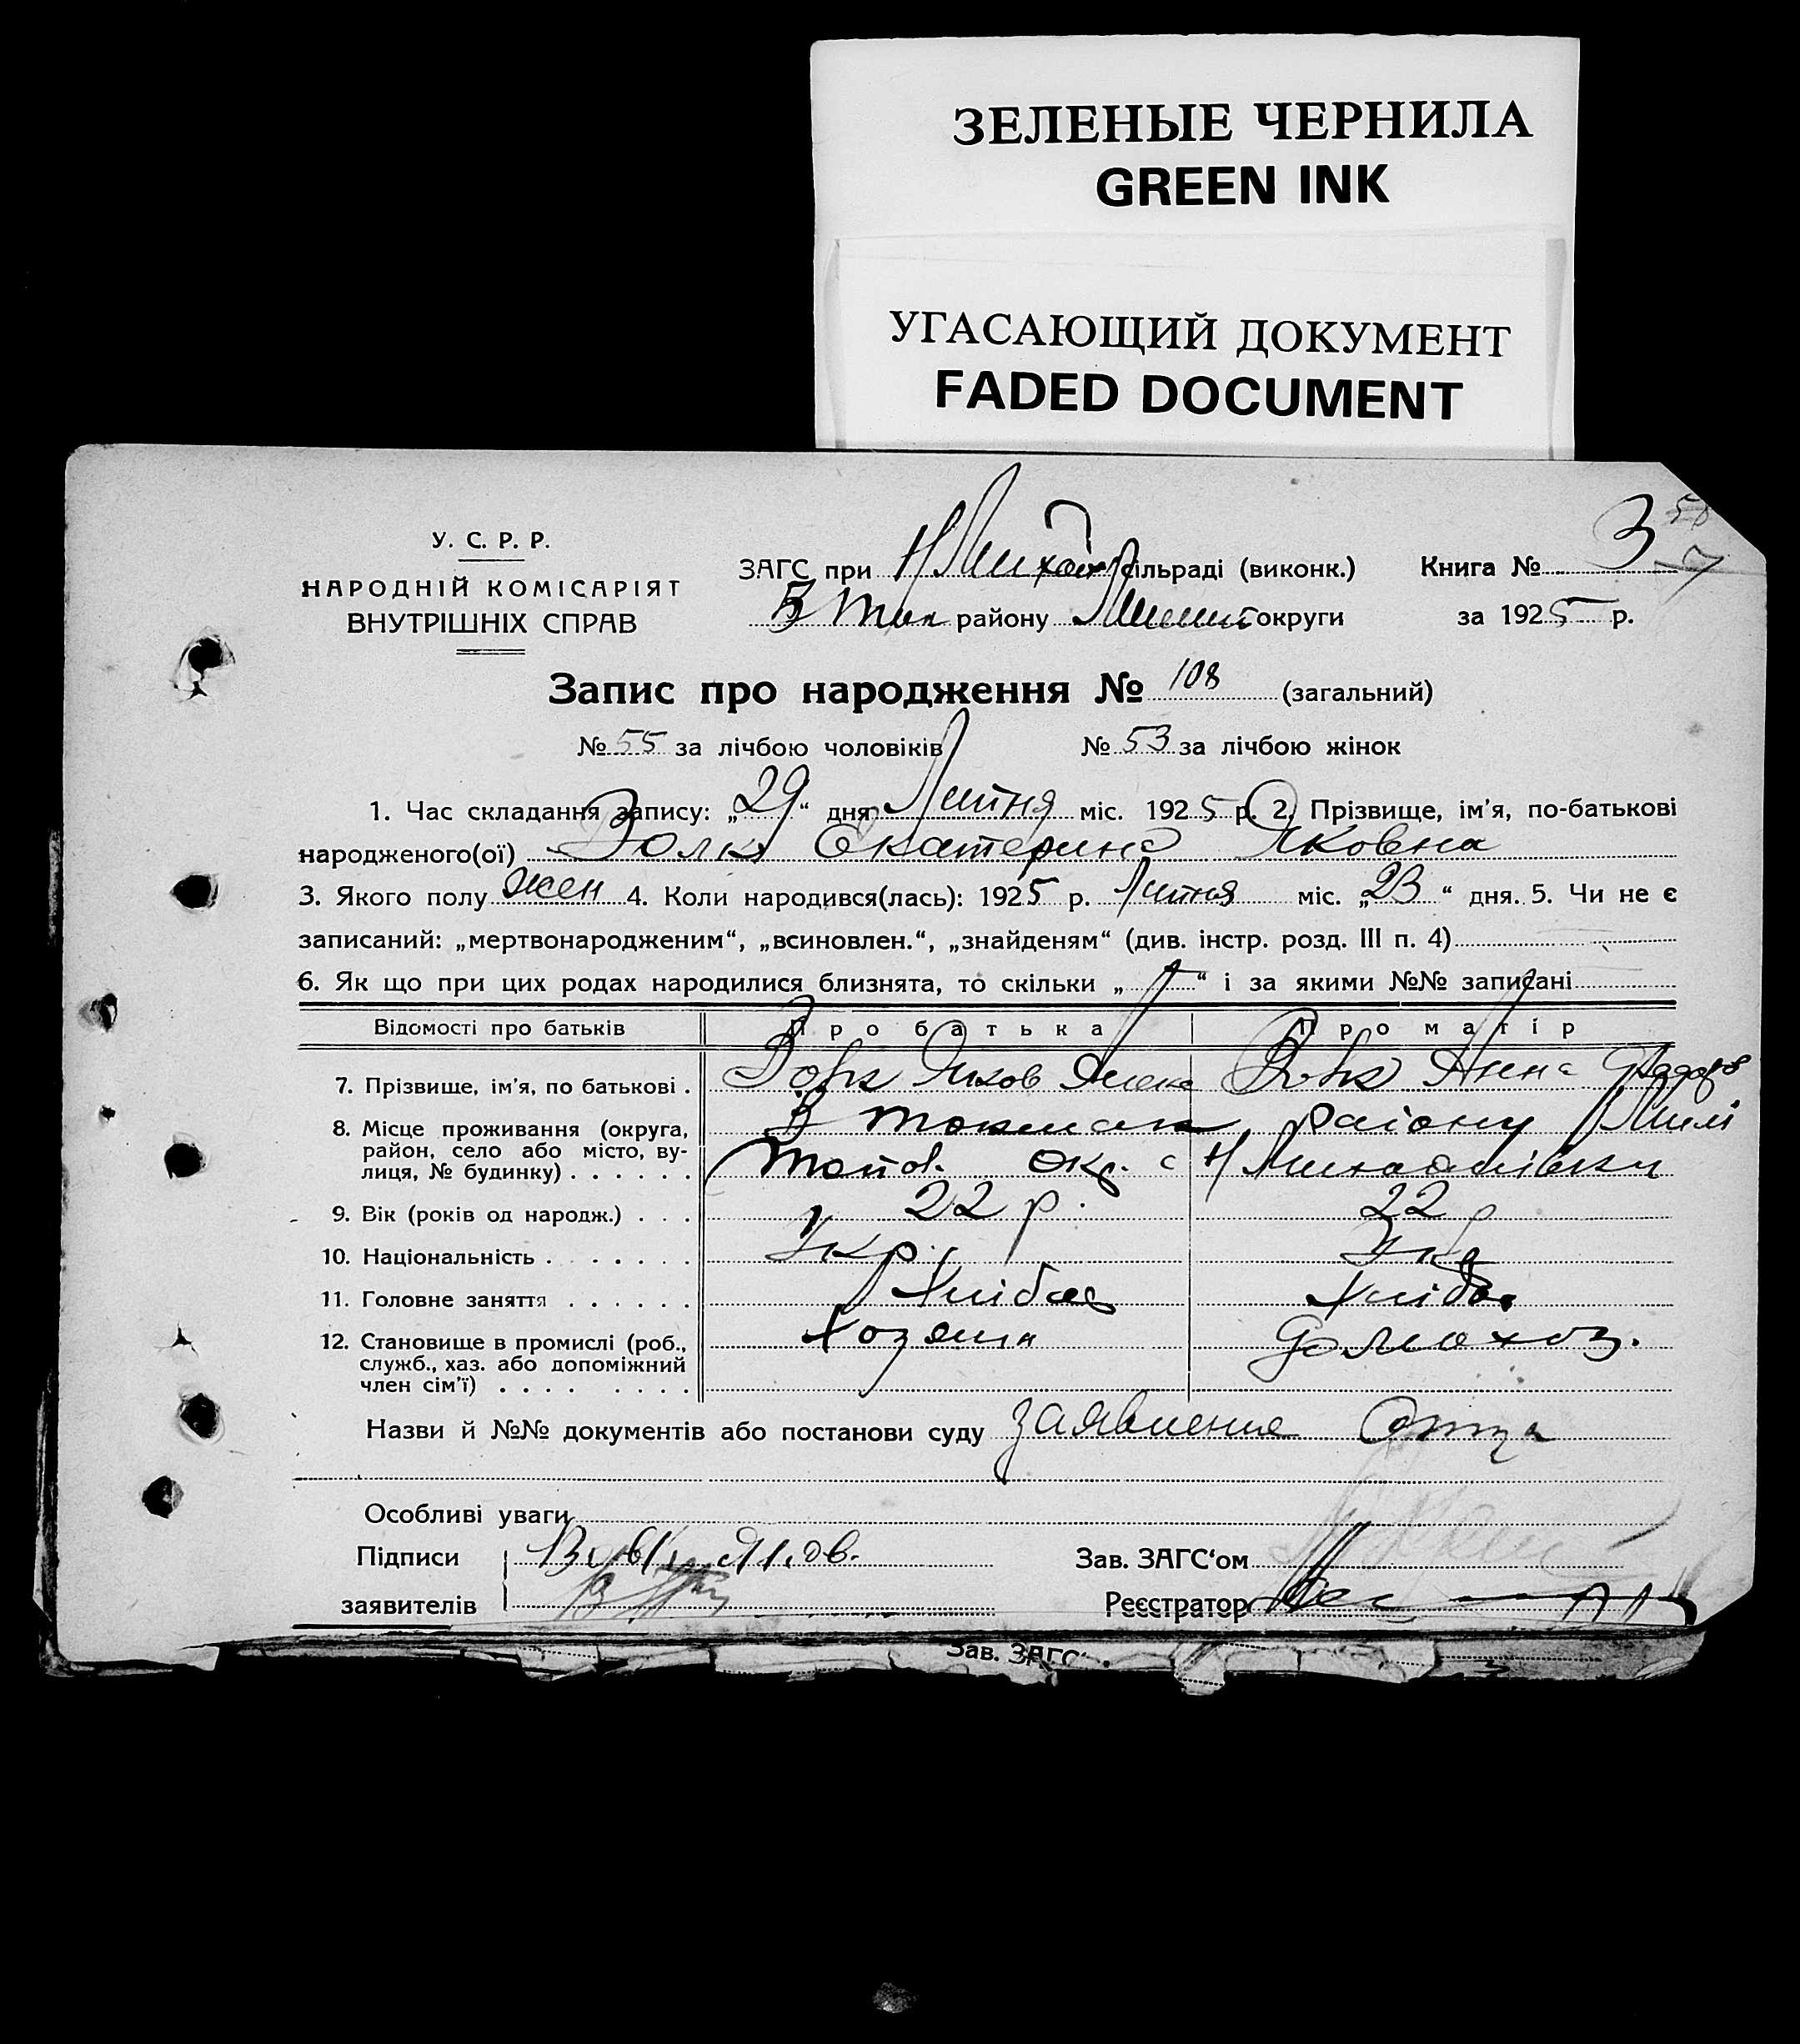 ЗЕЛЕНЫЕ ЧЕРНИЛА
GREEN INK
УГАСАЮЩИЙ ДОКУМЕНТ
FADED DOCUMENT
У. С. Р. Р.
НАРОДНІЙ КОМІСАРІЯТ
ВНУТРІШНІХ СПРАВ
ЗАГС при Н Михайл сільраді (виконк.)
В Ток району округи
Книга № 3
за 1925 р.
Запис про народження № 108 (загальний)
№ 55 за лічбою чоловіків № 53 за лічбою жінок
1. Час складання запису: „29“ дня Липня міс. 1925 р. 2. Прізвище, ім'я, по-батькові
народженого(ої) Волк Екатерина Яковна
3. Якого полу жен 4. Коли народився(лась): 1925 р. Липня міс. „23“ дня. 5. Чи не є
записаний: „мертвонародженим“, „всиновлен.“, „знайденям“ (див. інстр. розд. III п. 4)
6. Як що при цих родах народилися близнята, то скільки „ “ і за якими №№ записані
Відомості про батьків Про батька Про матір
7. Прізвище, ім'я, по батькові . Вовк Яков Вовк Анна
8. Місце проживання (округа, В Токмак району Мелі
район, село або місто, ву-
лиця, № будинку) . . . . . . топол. окр. с Н Михайлівки
9. Вік (років од народж.) . . . 22 р. 22 р
10. Національність . . . . . . Укр. Укр
11. Головне заняття . . . . . . Хлібоо Хлібо
12. Становище в промислі (роб., Хозяин домохоз.
служб., хаз. або допоміжний
член сім'ї) . . . . . . . .
Назви й №№ документів або постанови суду заявление Отца
Особливі уваги
Підписи Вовк Яков.
заявителів
Зав. ЗАГС'ом
Реєстратор
Зав. ЗАГС'